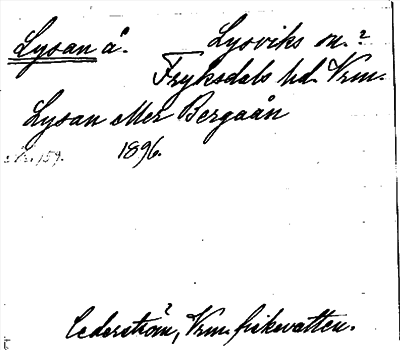 Lysan å. Lysviks sn.?
Fryksdals hd. Vrm.
Lysan eller Bergaån
1896.
Cederström, Vrm. fiskvatten.